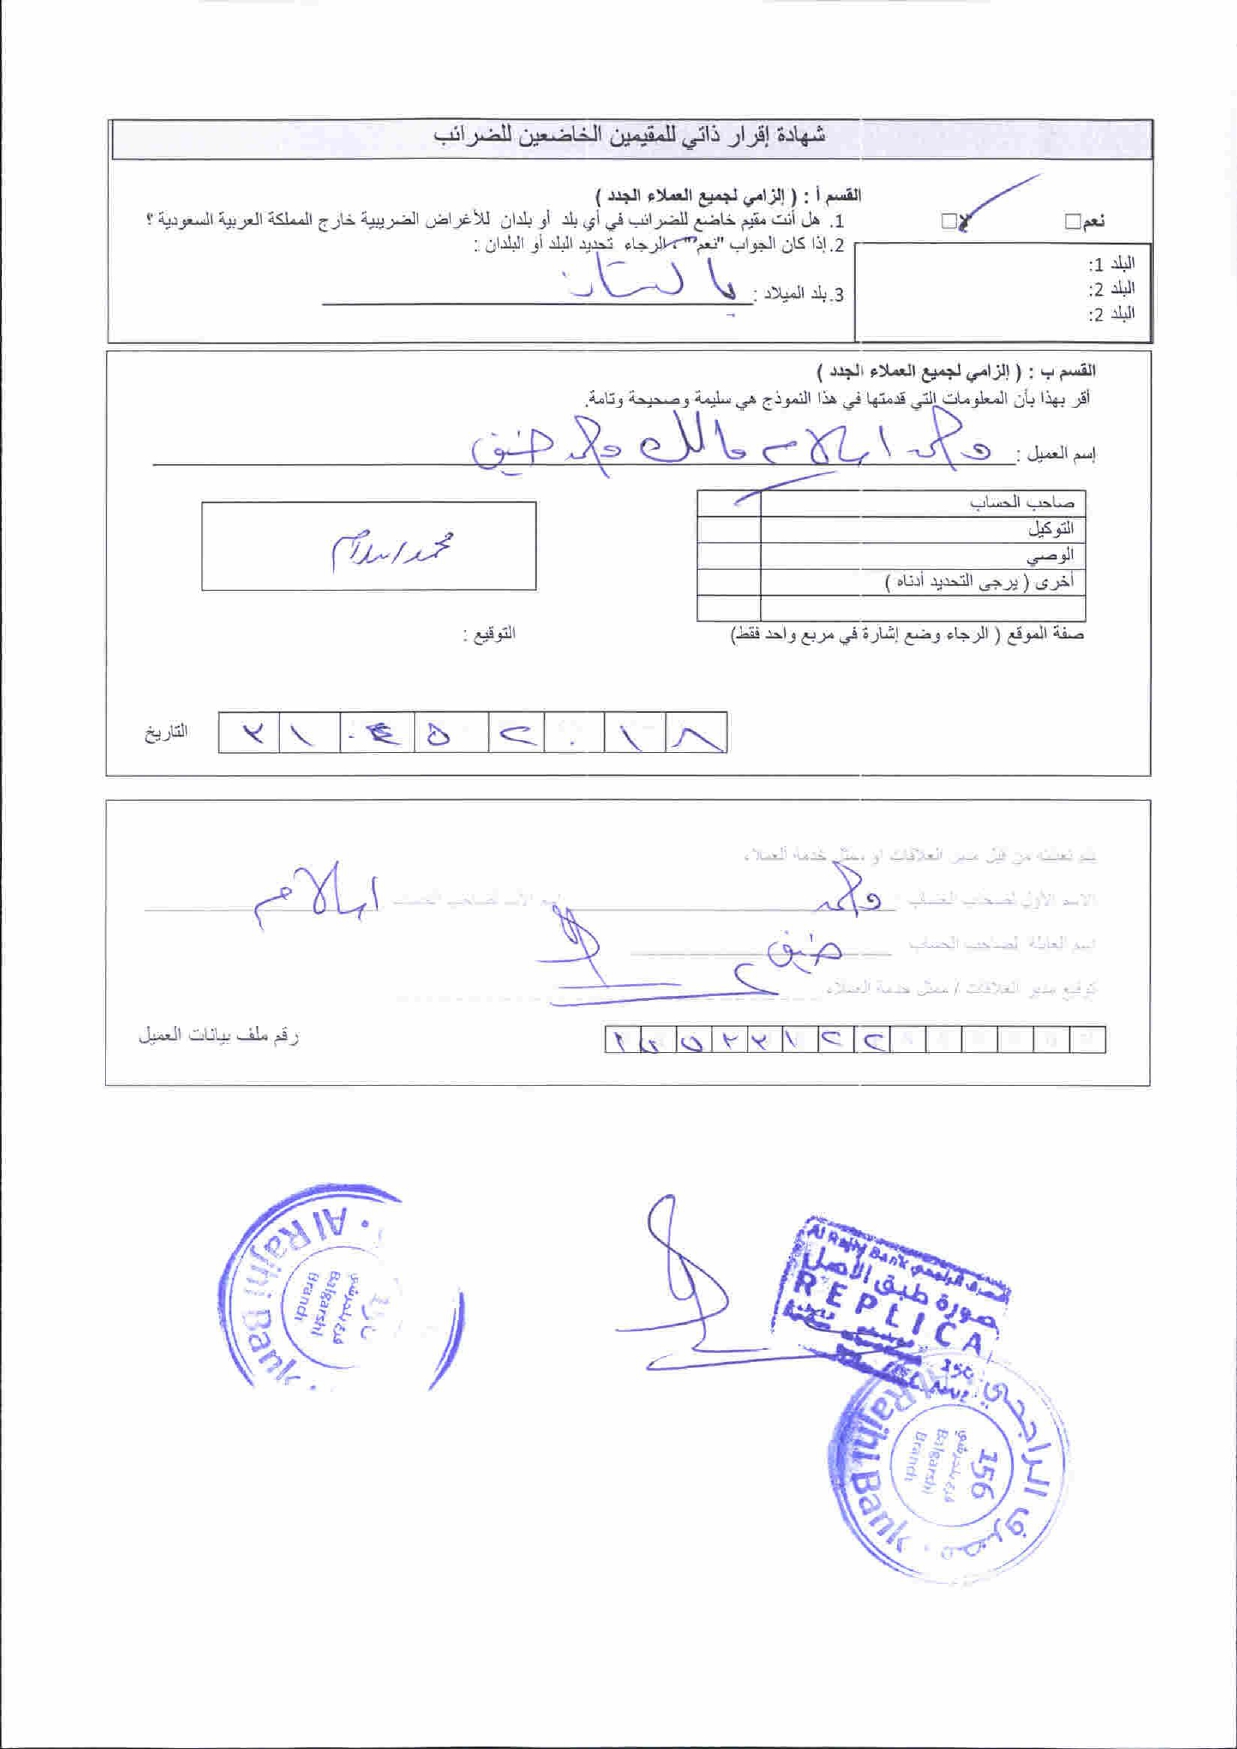 شهادة إقرار ذاتي للمقيمين الخاضعين للضرائب
القسم أ : ( إلزامي لجميع العملاء الجدد )
1. هل أنت مقيم خاضع للضرائب في أي بلد أو بلدان للأغراض الضريبية خارج المملكة العربية السعودية ؟
نعم □ لا □
2. إذا كان الجواب "نعم" الرجاء تحديد البلد أو البلدان :
البلد 1:
البلد 2:
البلد 2:
3. بلد الميلاد : باكستان
القسم ب : ( إلزامي لجميع العملاء الجدد )
أقر بهذا بأن المعلومات التي قدمتها في هذا النموذج هي سليمة وصحيحة وتامة.
إسم العميل : محمد اسلام مالك محمد حنيق
صاحب الحساب
التوكيل
الوصي
أخرى ( يرجى التحديد أدناه )
صفة الموقع ( الرجاء وضع إشارة في مربع واحد فقط)
محمد اسلام
التوقيع :
التاريخ
يتم تعبئته من قبل مدير العلاقات او ممثل خدمة العملاء
الاسم الأول لصاحب الحساب : محمد
اسم الأب لصاحب الحساب اسلام
اسم العائلة لصاحب الحساب حنيق
توقيع مدير العلاقات / ممثل خدمة العملاء
رقم ملف بيانات العميل
Al Rajhi Bank
Balgarshi
Branch
Al Rajhi Bank مصرف الراجحي
صورة طبق الأصل
REPLICA
مصرف الراجحي
Rajhi Bank
156
فرع بلجرشي
Balgarshi
Branch